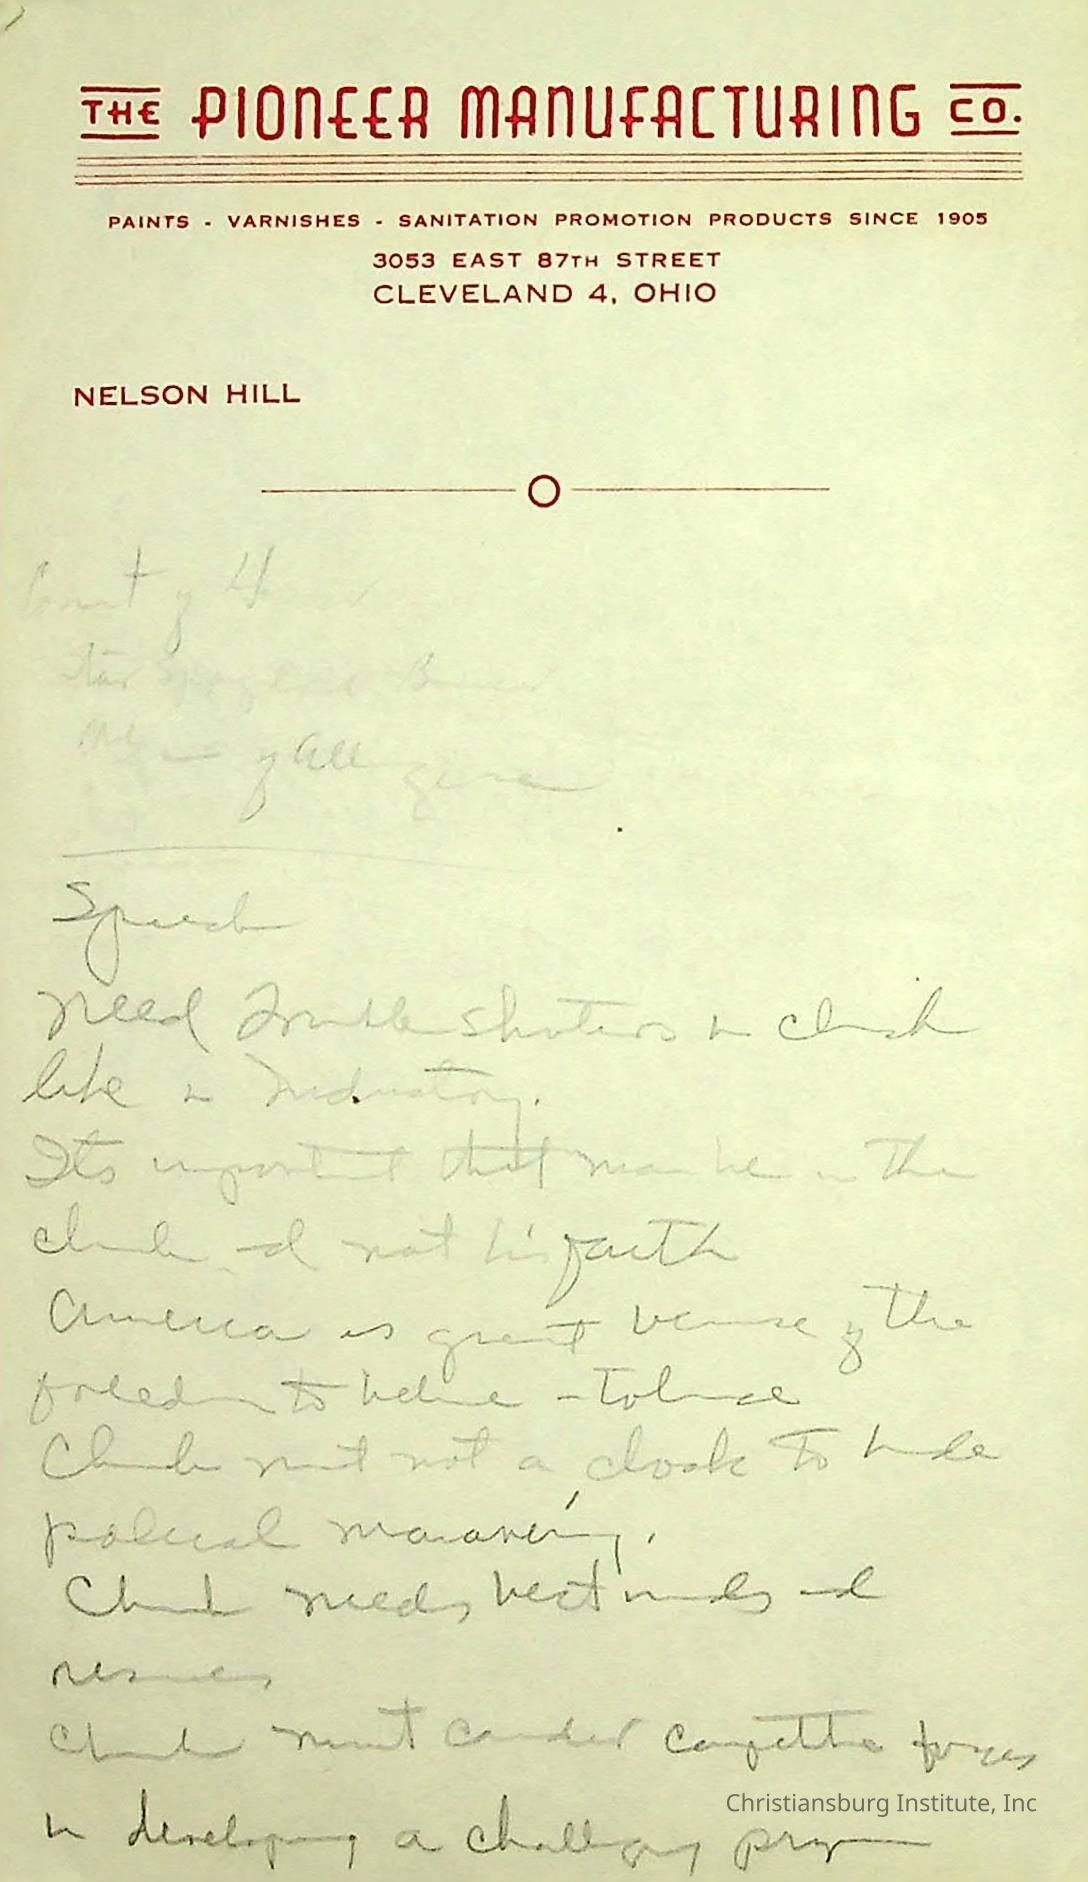 THE PIONEER MANUFACTURING CO.
PAINTS - VARNISHES - SANITATION PROMOTION PRODUCTS SINCE 1905
3053 EAST 87TH STREET
CLEVELAND 4, OHIO
NELSON HILL
Speech
Need Trouble Shooters in Church
like in Industry.
Its important that man be in the
church and not his faith
America is great because of the
freedom to believe - tolerance
Church must not a cloak to hide
political
Church needs best minds and
Church must consider competitive forces
in developing a challenging program
Christiansburg Institute, Inc